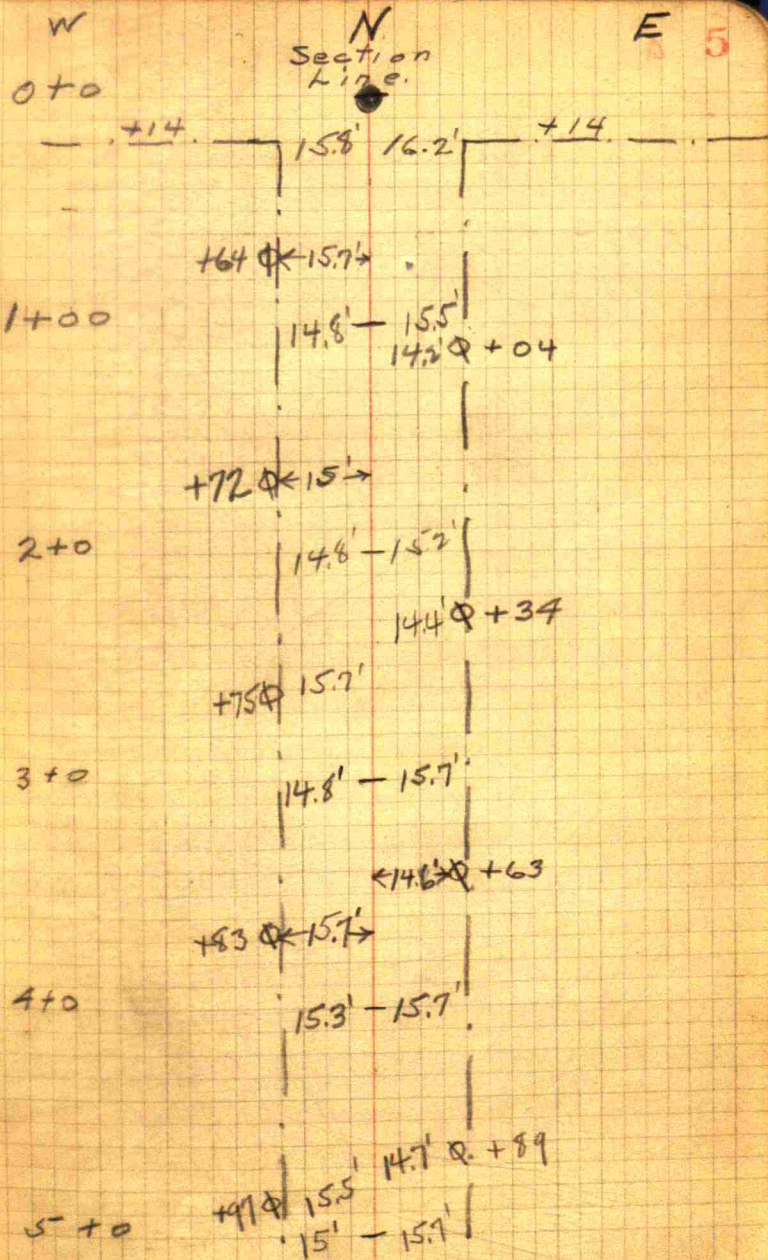 W N E 5
Section
Line.
0+0
+14 15.8' 16.2' +14
+64 15.7'
1+00
14.8' — 15.5'
14.2' +04
+72 15'
2+0
14.8' — 15.2'
14.4' +34
+75 15.7'
3+0
14.8' — 15.7'
14.6' +63
+83 15.7'
4+0
15.3' — 15.7'
14.7' +89
+97 15.5'
5+0
15' — 15.7'